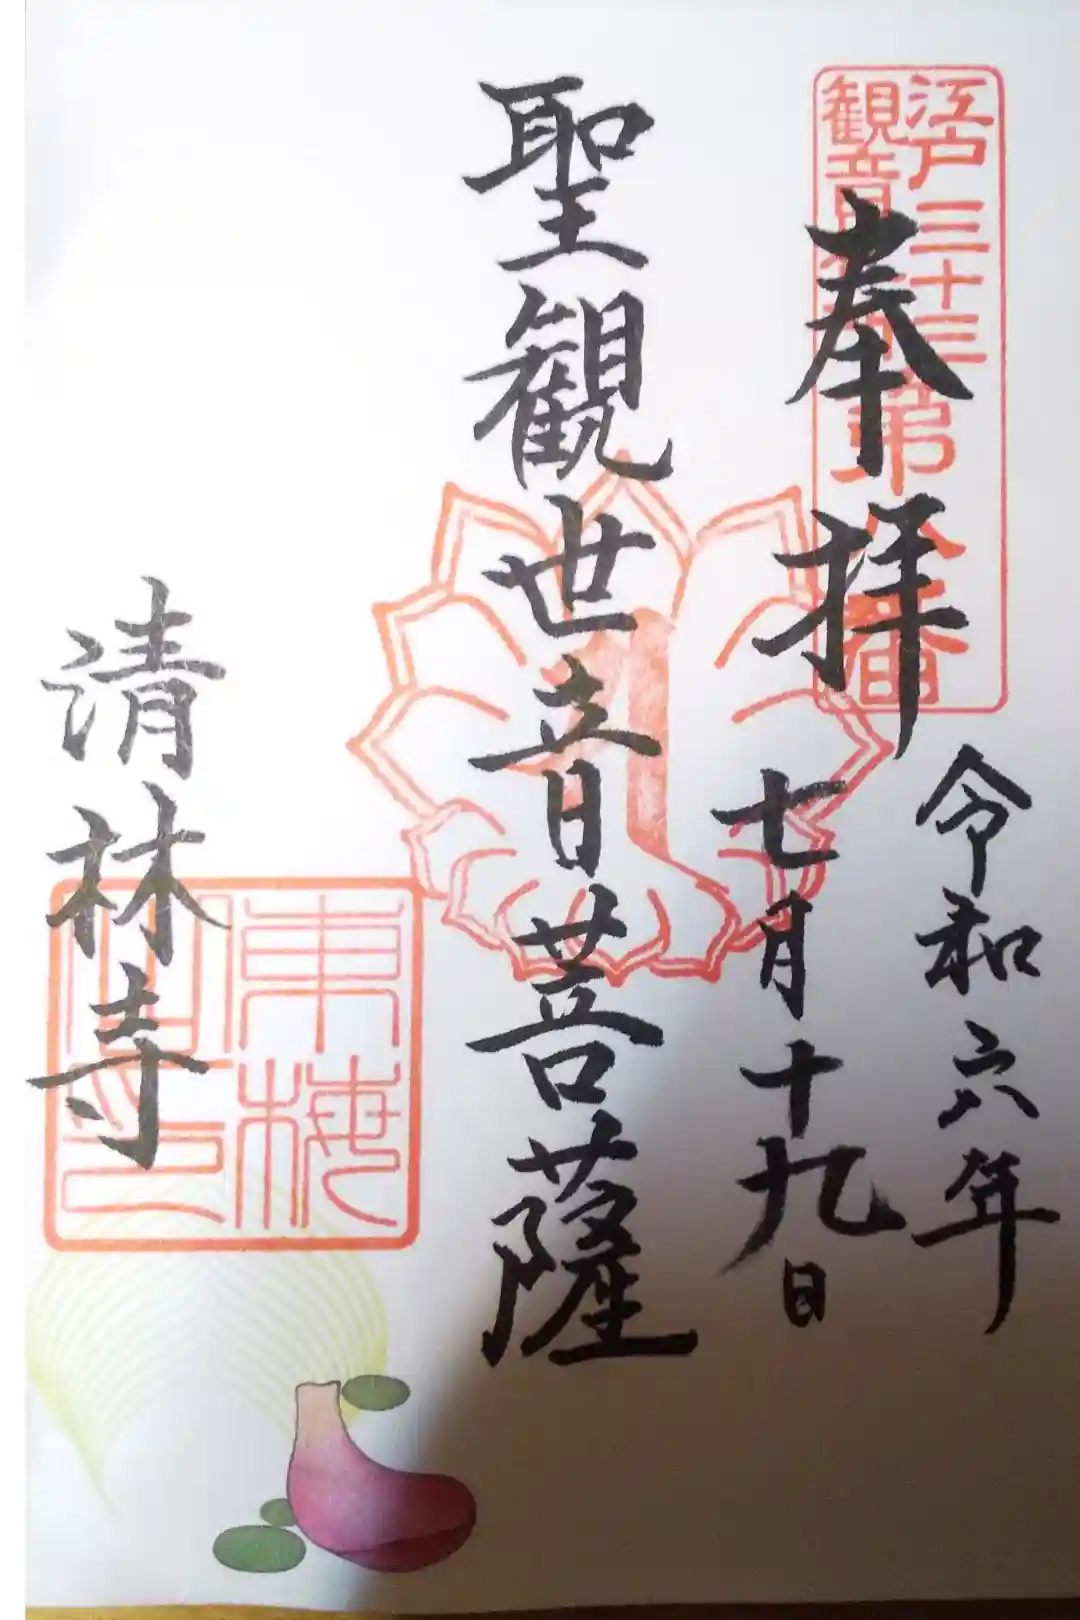 江戸三十三
観音
第八番
奉拝
令和六年
七月十九日
聖観世音菩薩
清林寺
東梅